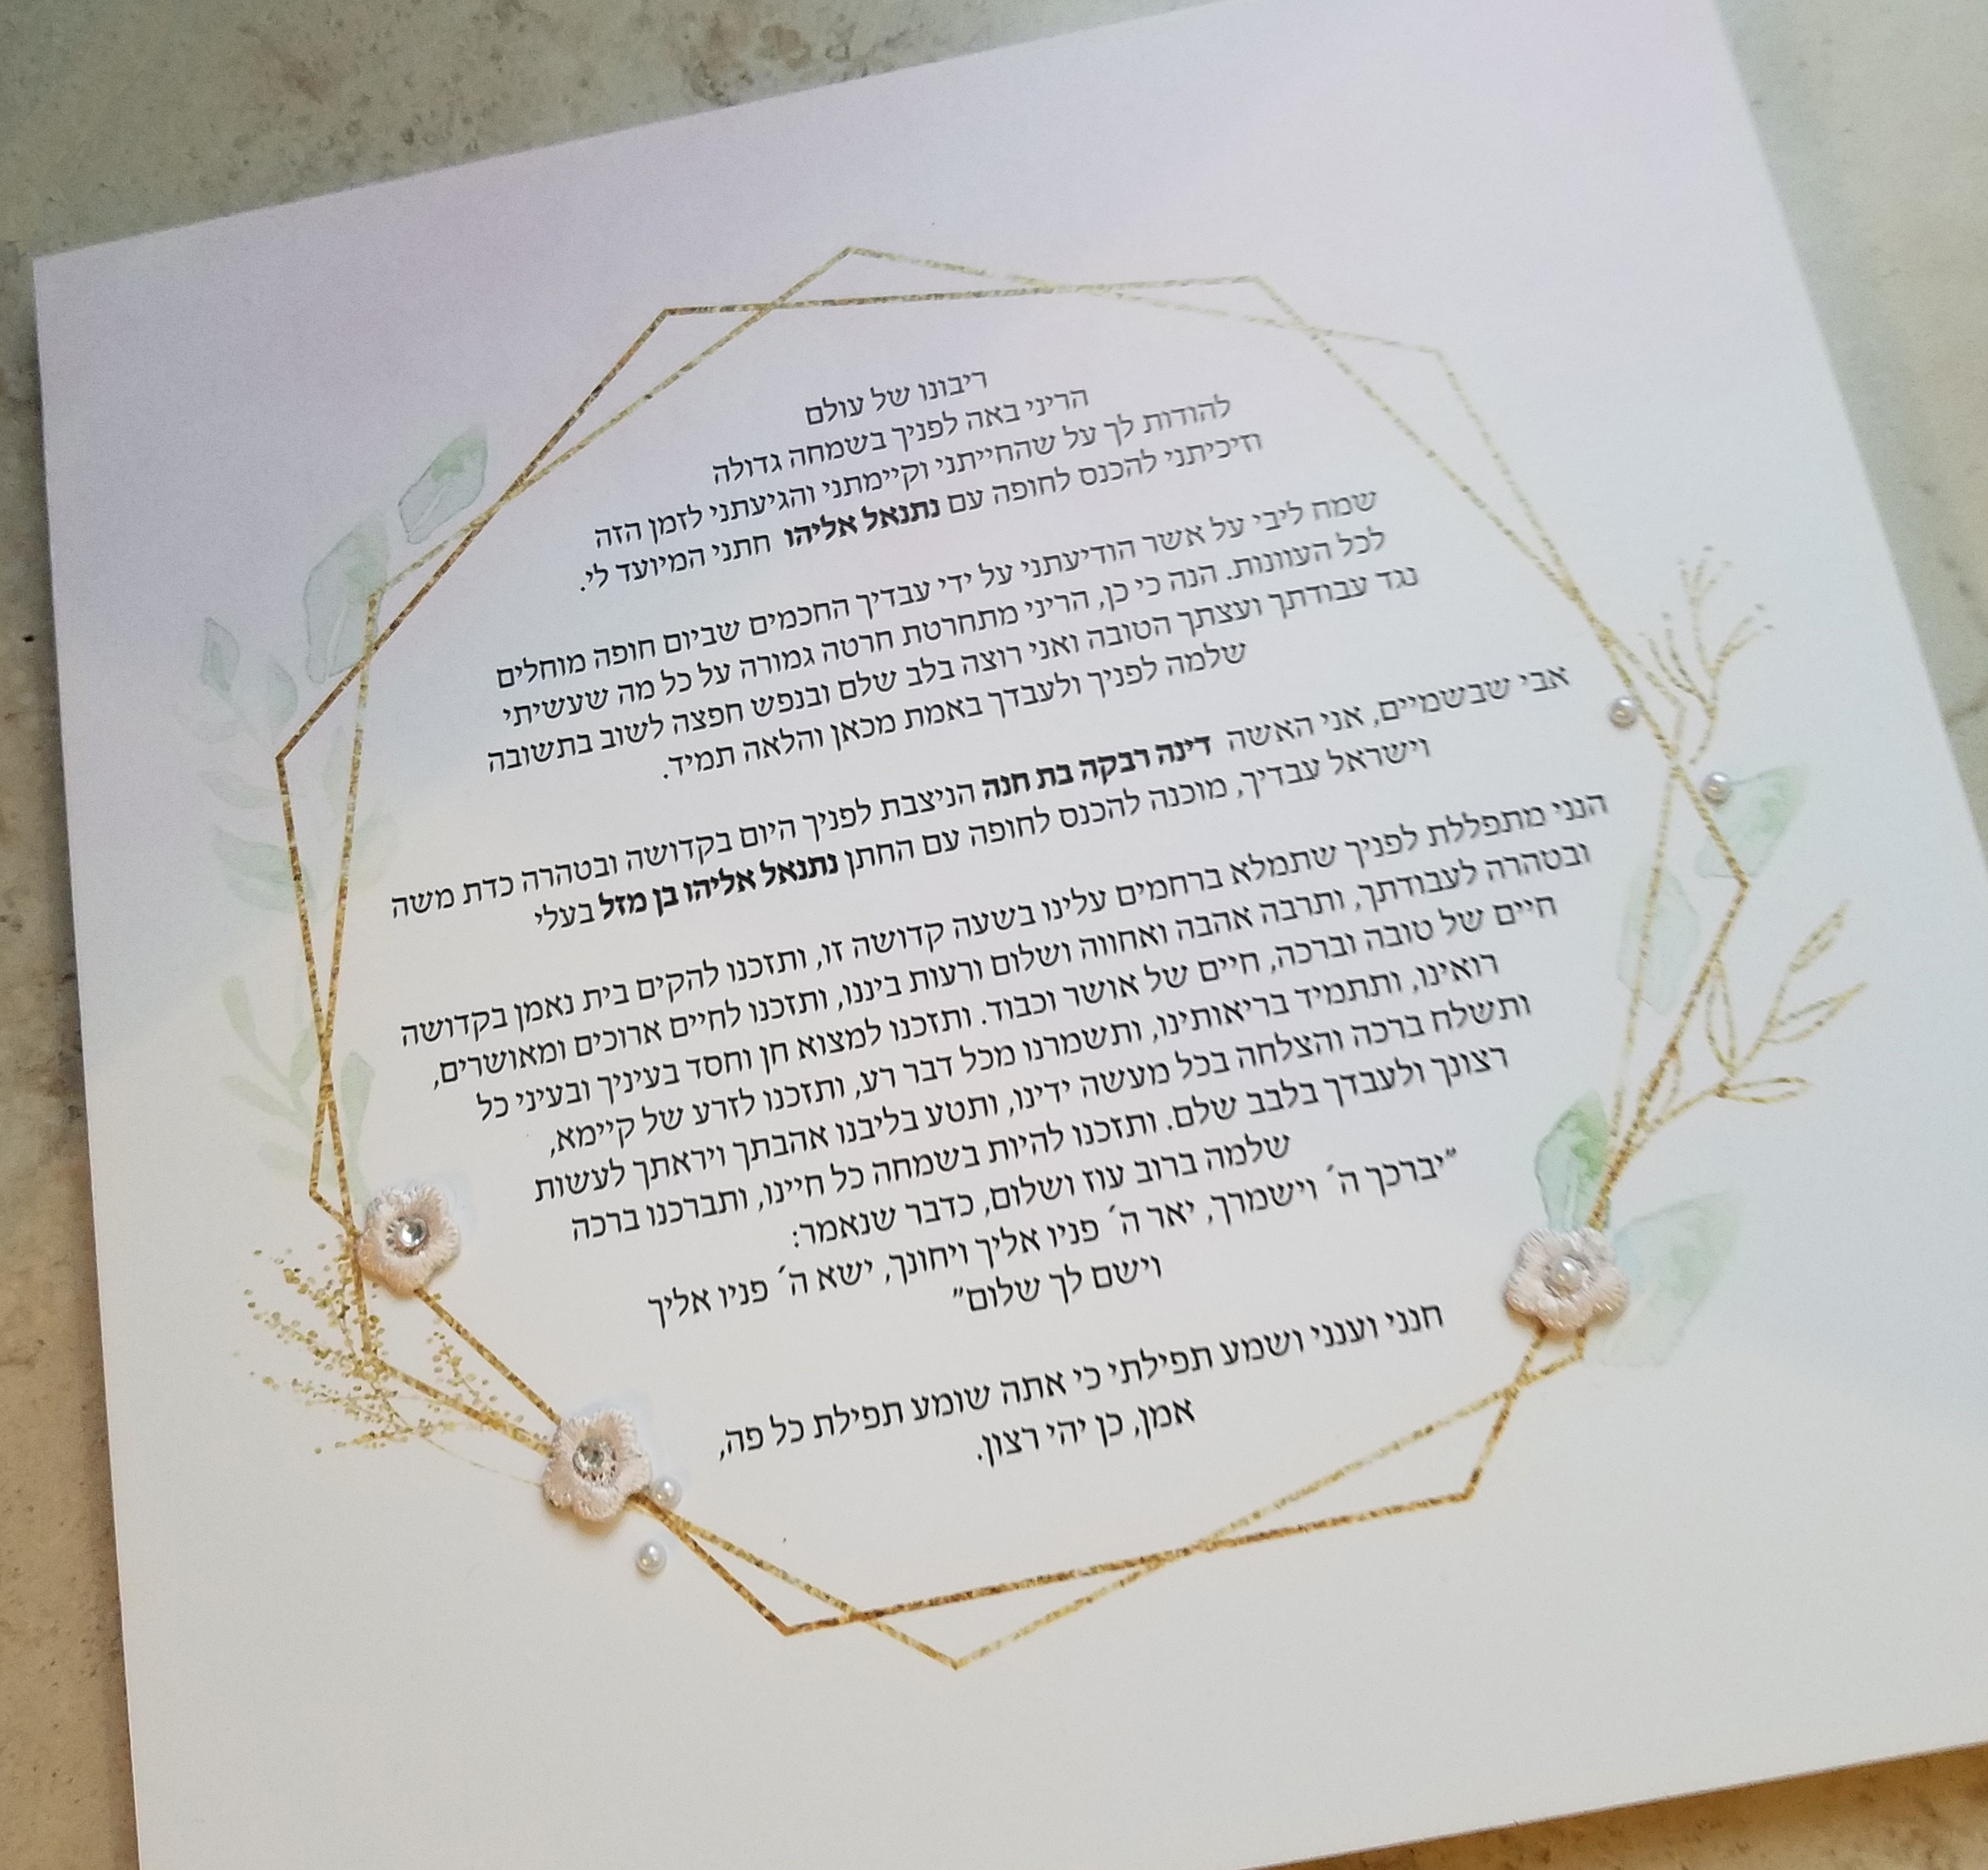 ריבונו של עולם
הריני באה לפניך בשמחה גדולה
להודות לך על שהחייתני וקיימתני והגיעתני לזמן הזה
וזיכיתני להכנס לחופה עם נתנאל אליהו חתני המיועד לי.
שמח ליבי על אשר הודיעתני על ידי עבדיך החכמים שביום חופה מוחלים
לכל העוונות. הנה כי כן, הריני מתחרטת חרטה גמורה על כל מה שעשיתי
נגד עבודתך ועצתך הטובה ואני רוצה בלב שלם ובנפש חפצה לשוב בתשובה
שלמה לפניך ולעבדך באמת מכאן והלאה תמיד.
אבי שבשמיים, אני האשה דינה רבקה בת חנה הניצבת לפניך היום בקדושה ובטהרה כדת משה
וישראל עבדיך, מוכנה להכנס לחופה עם החתן נתנאל אליהו בן מזל בעלי
הנני מתפללת לפניך שתמלא ברחמים עלינו בשעה קדושה זו, ותזכנו להקים בית נאמן בקדושה
ובטהרה לעבודתך, ותרבה אהבה ואחווה ושלום ורעות ביננו, ותזכנו לחיים ארוכים ומאושרים,
חיים של טובה וברכה, חיים של אושר וכבוד. ותזכנו למצוא חן וחסד בעיניך ובעיני כל
רואינו, ותתמיד בריאותינו, ותשמרנו מכל דבר רע, ותזכנו לזרע של קיימא,
ותשלח ברכה והצלחה בכל מעשה ידינו, ותטע בליבנו אהבתך ויראתך לעשות
רצונך ולעבדך בלבב שלם. ותזכנו להיות בשמחה כל חיינו, ותברכנו ברכה
שלמה ברוב עוז ושלום, כדבר שנאמר:
״יברכך ה׳ וישמרך, יאר ה׳ פניו אליך ויחונך, ישא ה׳ פניו אליך
וישם לך שלום״
חנני וענני ושמע תפילתי כי אתה שומע תפילת כל פה,
אמן, כן יהי רצון.